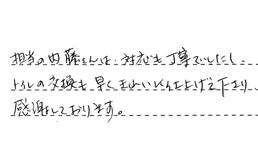 担当の内藤さんは、対応も丁寧でしたし、
トイレの交換も早くきれいに仕上げて下さり
感謝しております。